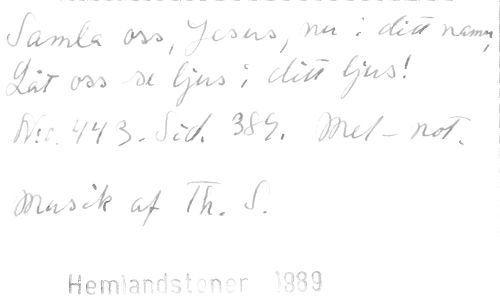 Samla oss, Jesus, nu i ditt namn,
Låt oss se ljus i ditt ljus!
N:o. 443. Sid. 389. Mel-not.
Musik af Th. S.
Hemlandstoner 1889